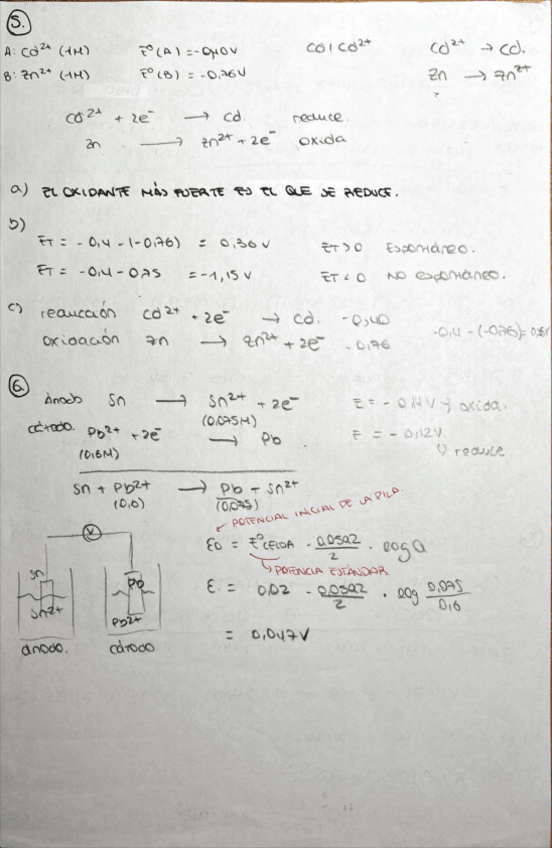 5.
A: Cd²⁺ (1M)   E°(A) = -0,40V   Cd | Cd²⁺   Cd²⁺ → Cd.
B: Zn²⁺ (1M)   E°(B) = -0,76V   Zn → Zn²⁺
?
Cd²⁺ + 2e⁻ → Cd   reduce.
Zn → Zn²⁺ + 2e⁻   oxida
a) EL OXIDANTE MÁS FUERTE ES EL QUE SE REDUCE.
b)
ET = -0,4 - (-0,76) = 0,36 V   ET > 0   Espontáneo.
ET = -0,4 - 0,75 = -1,15 V   ET < 0   NO espontáneo.
c) reducción   Cd²⁺ + 2e⁻ → Cd.   -0,40
oxidación   Zn → Zn²⁺ + 2e⁻   -0,76   -0,4 - (-0,76) =
6.
Ánodo   Sn → Sn²⁺ + 2e⁻   E = -0,14V → oxida.
(0,075M)
cátodo.   Pb²⁺ + 2e⁻ → Pb   E = -0,12V
(0,6M)   ↳ reduce
Sn + Pb²⁺ → Pb + Sn²⁺
(0,6)   (0,075)
POTENCIAL INICIAL DE LA PILA
V
E0 = E°CELDA - 0,0592/2 · log Q
↳ POTENCIA ESTÁNDAR
Sn   Pb
Sn²⁺   Pb²⁺
E = 0,02 - 0,0592/2 · log 0,075/0,6
ánodo.   cátodo
= 0,047V